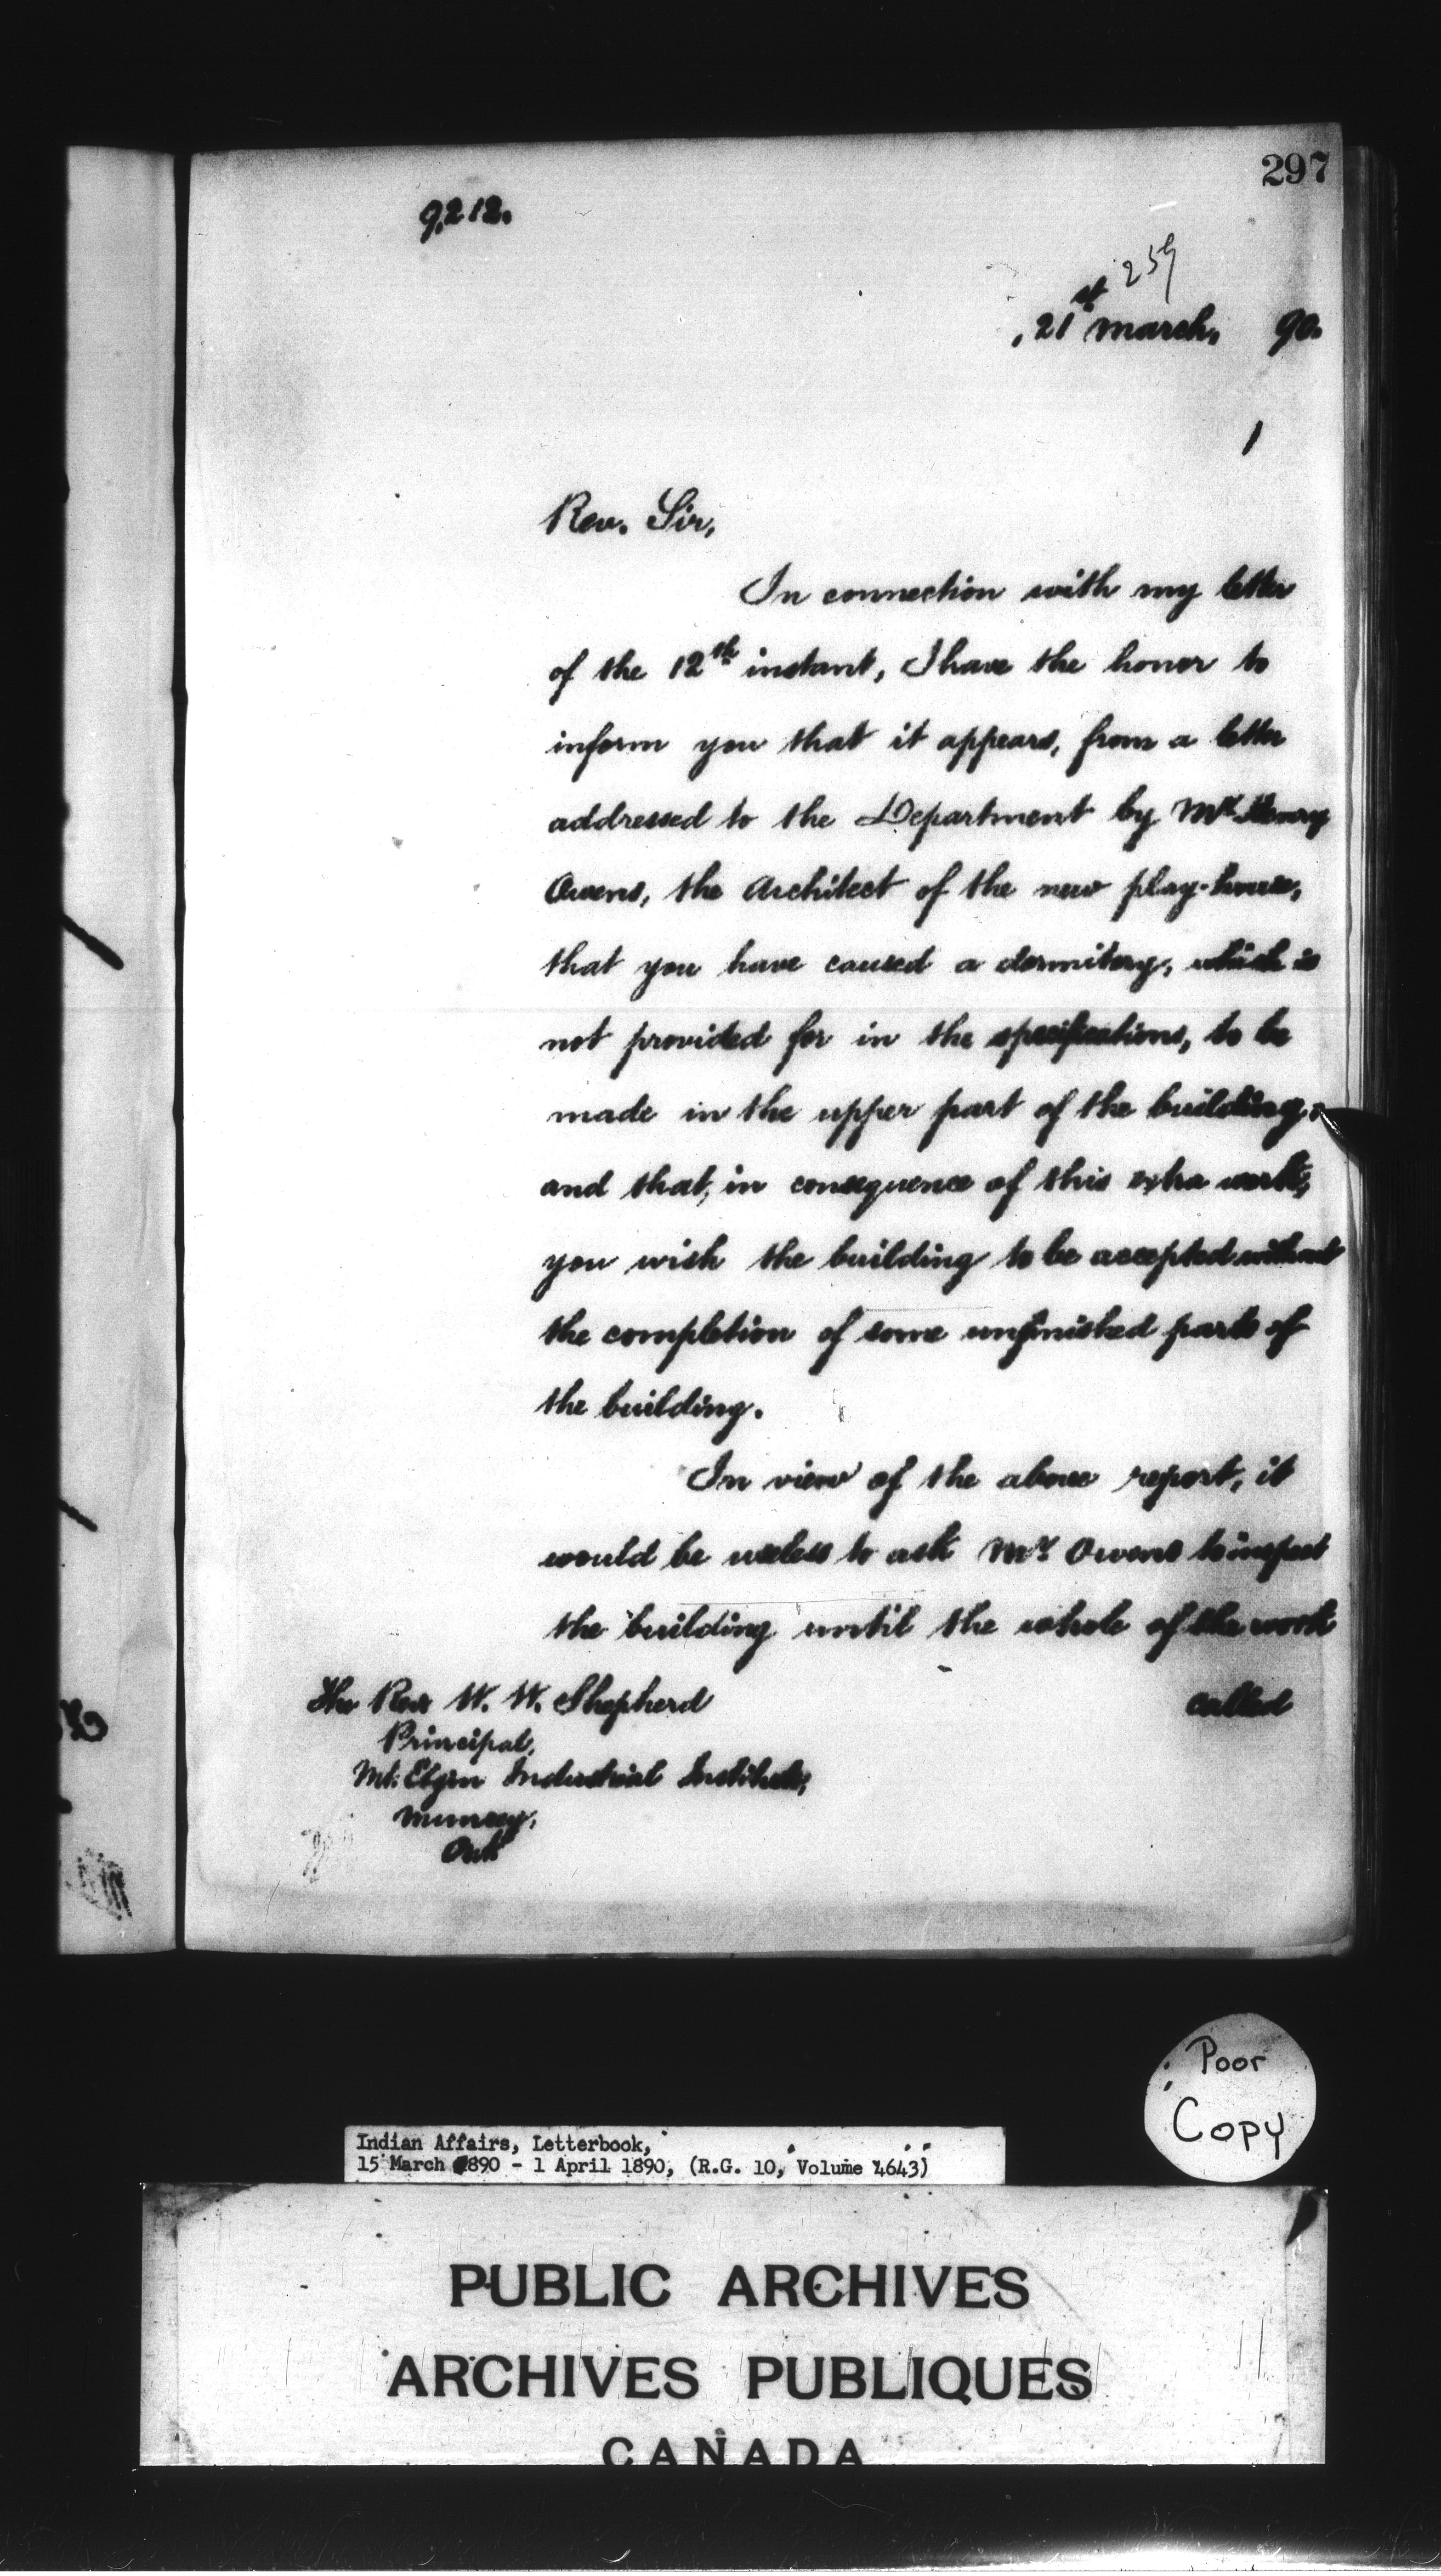 297
9,212.
259
21st March, 90.
Rev. Sir,
In connection with my letter
of the 12th instant, I have the honor to
inform you that it appears, from a letter
addressed to the Department by Mr Henry
Owens, the Architect of the new play-house,
that you have caused a dormitory, which is
not provided for in the specifications, to be
made in the upper part of the building,
and that, in consequence of this extra work,
you wish the building to be accepted without
the completion of some unfinished parts of
the building.
In view of the above report, it
would be useless to ask Mr Owens to inspect
the building until the whole of the work
called
The Rev W. W. Shepherd
Principal,
Mt. Elgin Industrial Institute,
Muncey,
Ont
Poor
Copy
Indian Affairs, Letterbook,
15 March 1890 - 1 April 1890, (R.G. 10, Volume 4643)
PUBLIC ARCHIVES
ARCHIVES PUBLIQUES
CANADA